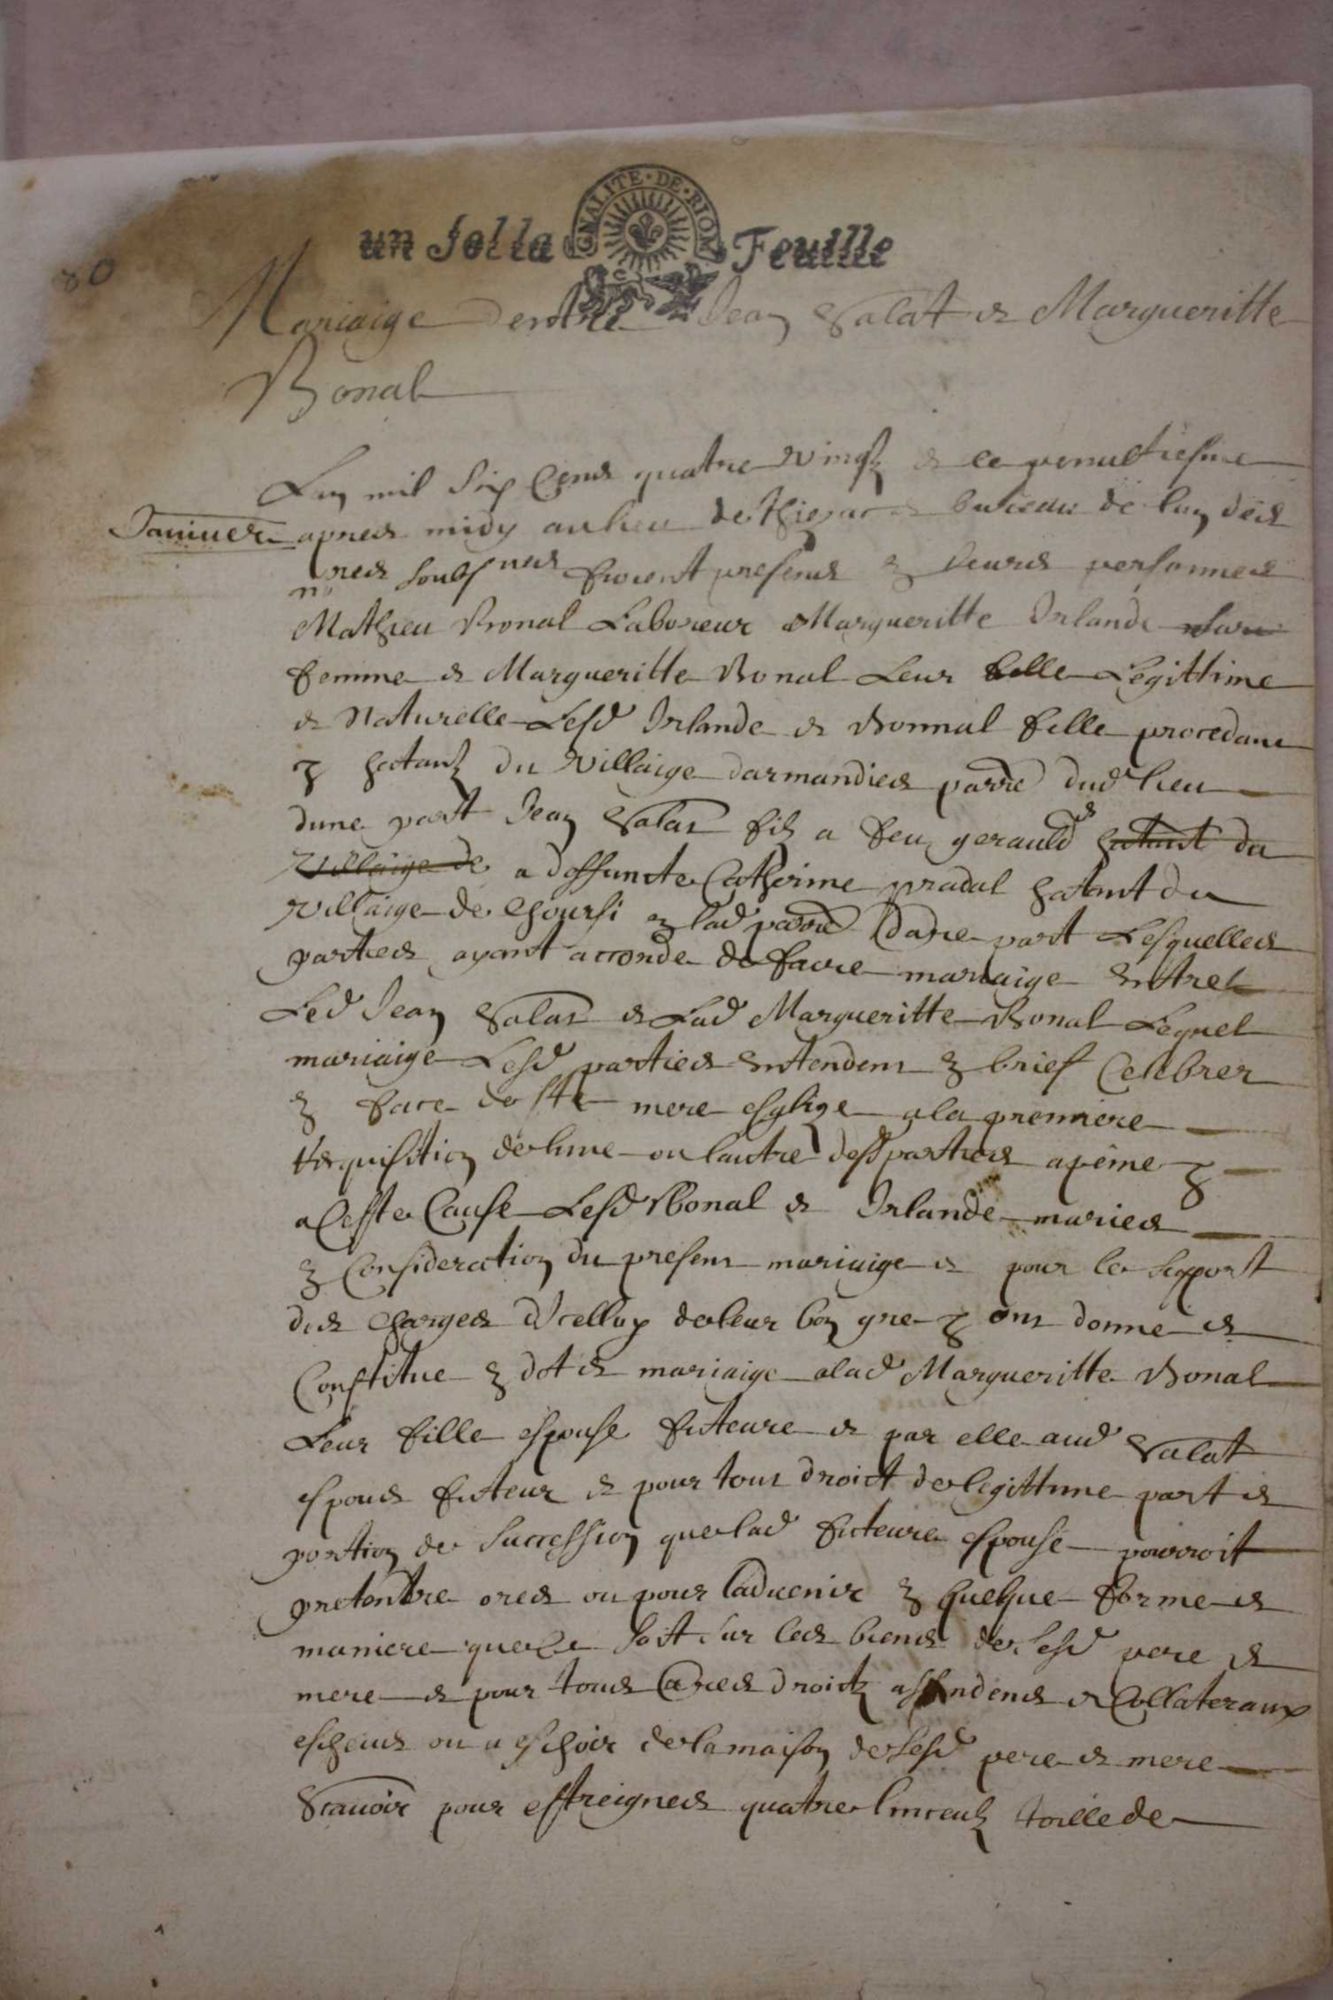 80
un sol la Feuille
GNALITE · DE · RIOM
Mariaige dentre Jean Salat et Margueritte
Bonal
Lan mil six cens quatre vingtz et le penultiesme
Janvier apres midy au lieu de Thiezac et bureau de lun des
nores soubsnes furent presens en leurs personnes
Mathieu Bonal Laboreur Margueritte Irlande sa
femme et Margueritte Bonal Leur fille Legittime
et Naturelle Lesd Irlande et Bonnal fille procedant
habitantz du villaige darmandies parre dud lieu
dune part Jean Salat filz a feu gerauld et habitant du
villaige de a deffuncte Catherine pradal habitant du
villaige de Choursi en lad parre dautre part Lesquelles
parties ayant accorde de faire mariaige entre
Led Jean Salat et Lad Margueritte Bonal Lequel
mariaige Lesd parties entendent en brief Celebrer
en face de ste mere esglize a la premiere
requisition de lune ou lautre desd parties a peine
a Ceste Cause Lesd Bonal et Irlande maries
en Consideration du present mariaige et pour le support
des charges dicelluy de leur bon gre ont donne et
Constitue en dot et mariaige a lad Margueritte Bonal
Leur fille espouse futeure et par elle aud Salat
espoux futeur et pour tout droict de legittime part et
portion de succession que lad futeure espouse pourroit
pretendre ores ou pour ladvenir en quelque forme et
maniere que ce soit sur les biens de sesd pere et
mere et pour tous autres droictz assendens et Collateraux
escheus ou a eschoir de la maison de sesd pere et mere
Scavoir pour estreignes quatre linceulz toille de